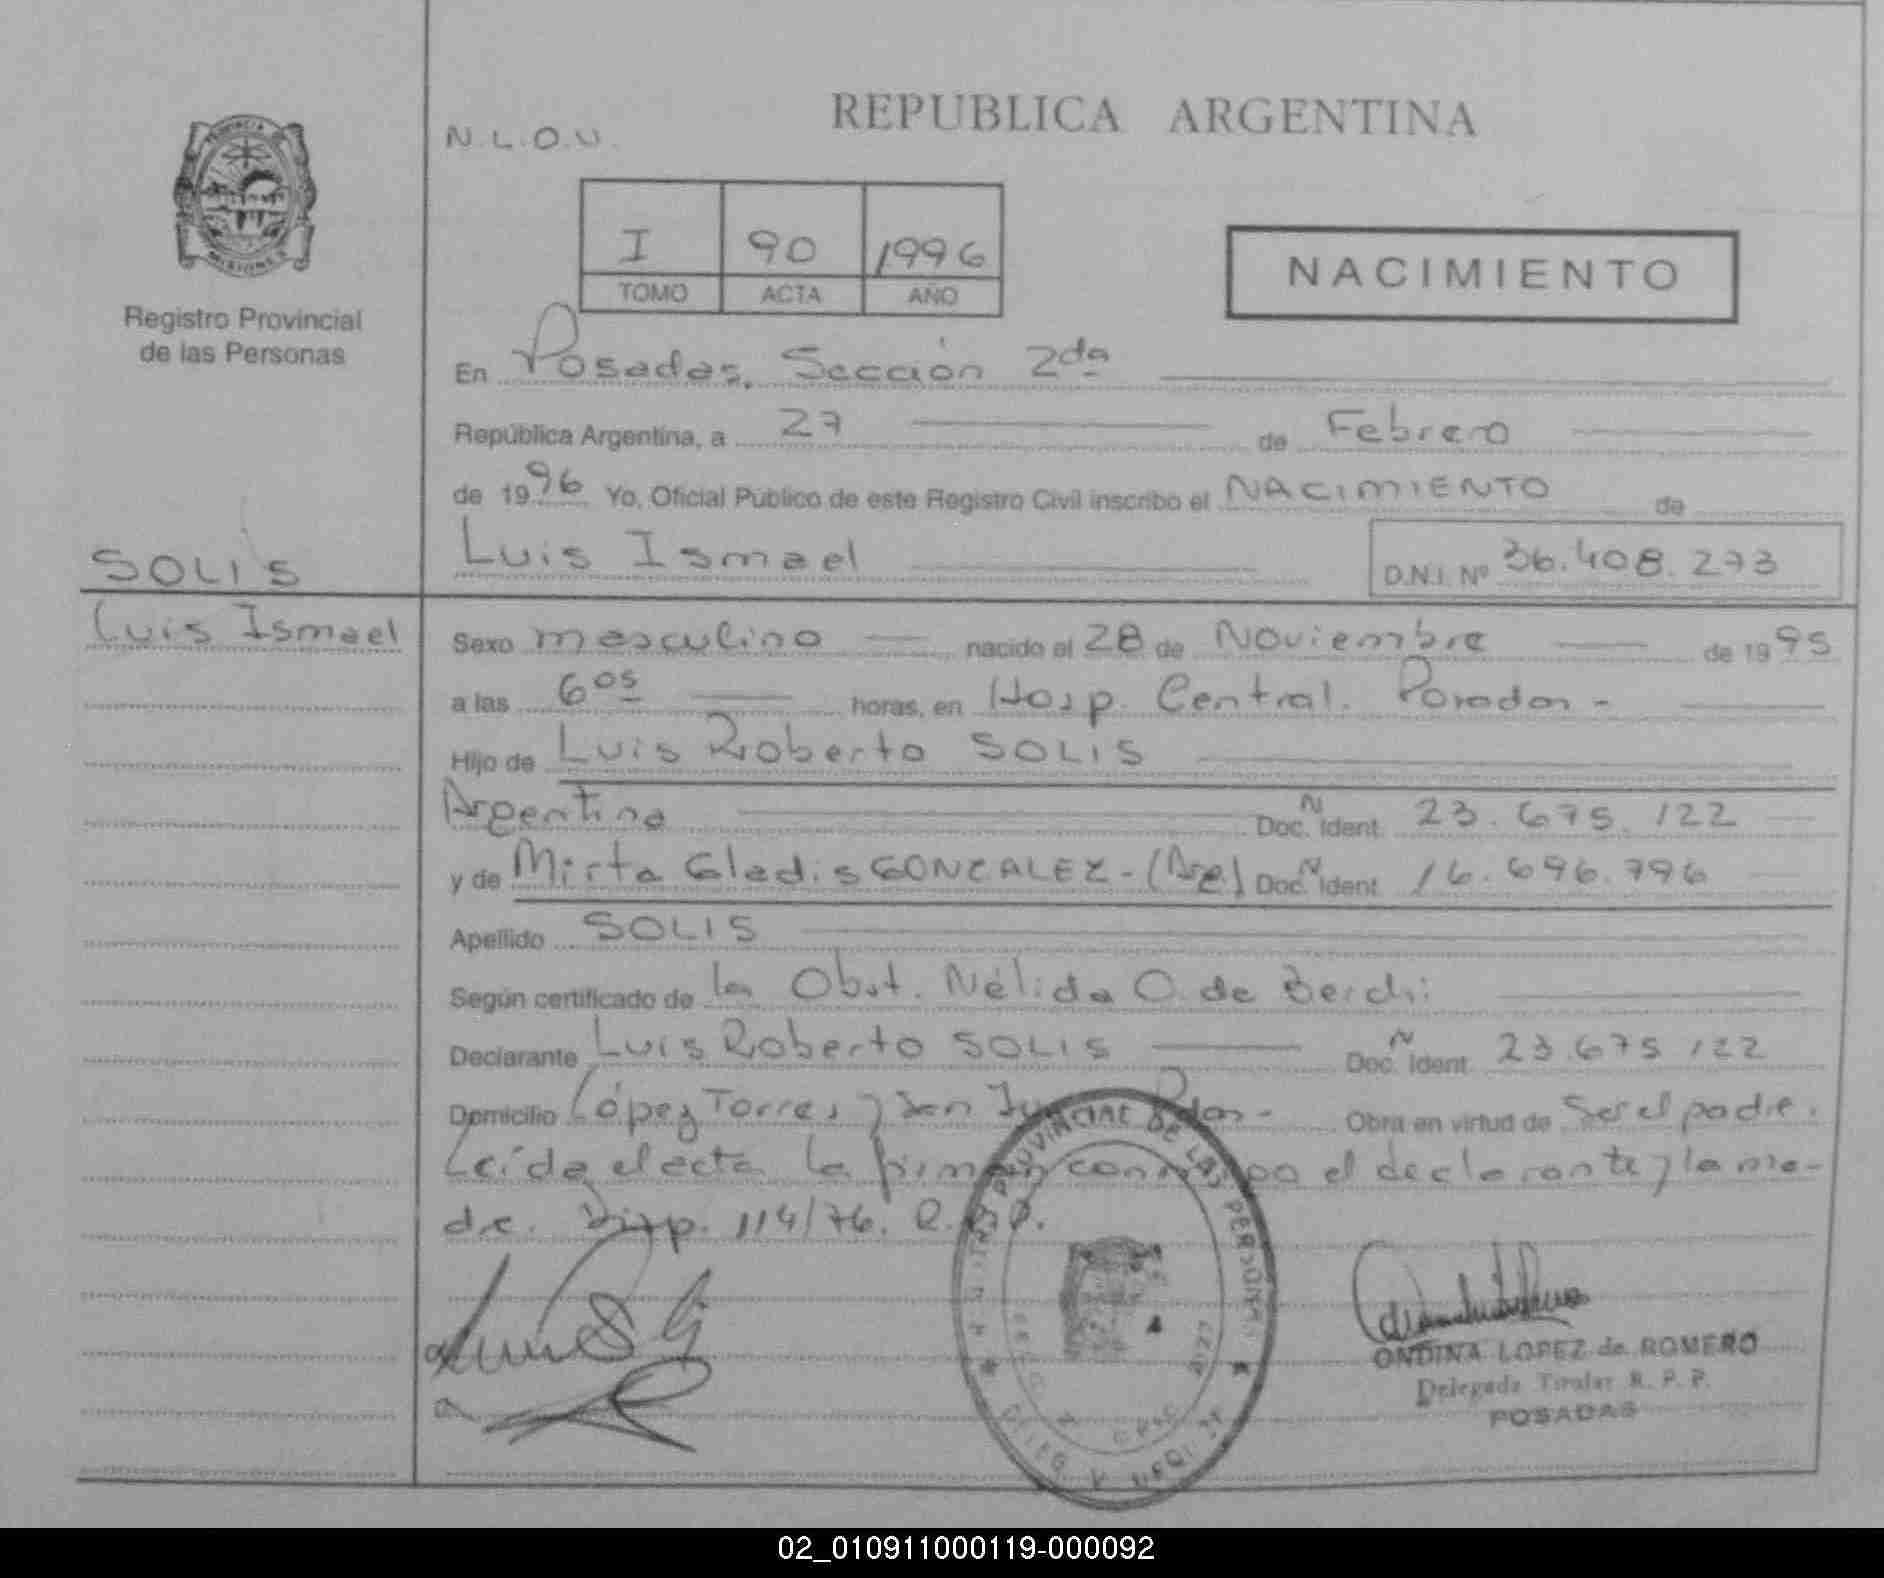 REPUBLICA ARGENTINA
N.L.O.U.
I 90 1996
TOMO ACTA AÑO
NACIMIENTO
PROVINCIA
MISIONES
Registro Provincial
de las Personas
En Posadas, Sección 2da
República Argentina, a 27 de Febrero
de 1996 Yo, Oficial Público de este Registro Civil inscribo el NACIMIENTO de
Luis Ismael D.N.I. Nº 36.408.273
SOLIS
Luis Ismael
Sexo masculino nacido el 28 de Noviembre de 1995
a las 6os horas, en Hosp. Central. Posadas -
Hijo de Luis Roberto SOLIS
Argentina Doc. Ident. 23.675.122
y de Mirta Gladis GONZALEZ - (Arg) Doc. Ident. 16.696.796
Apellido SOLIS
Según certificado de la Obst. Nélida O. de Berchi
Declarante Luis Roberto SOLIS Doc. Ident. 23.675.122
Domicilio López Torres y San Pdas - Obra en virtud de Ser el padre.
Leída el acta la firman conmigo el declarante y la ma-
dre. Disp. 114/76. R.P.P.
PROVINCIAL DE LAS PERSONAS
ONDINA LOPEZ de ROMERO
Delegada Titular R. P. P.
POSADAS
02_010911000119-000092